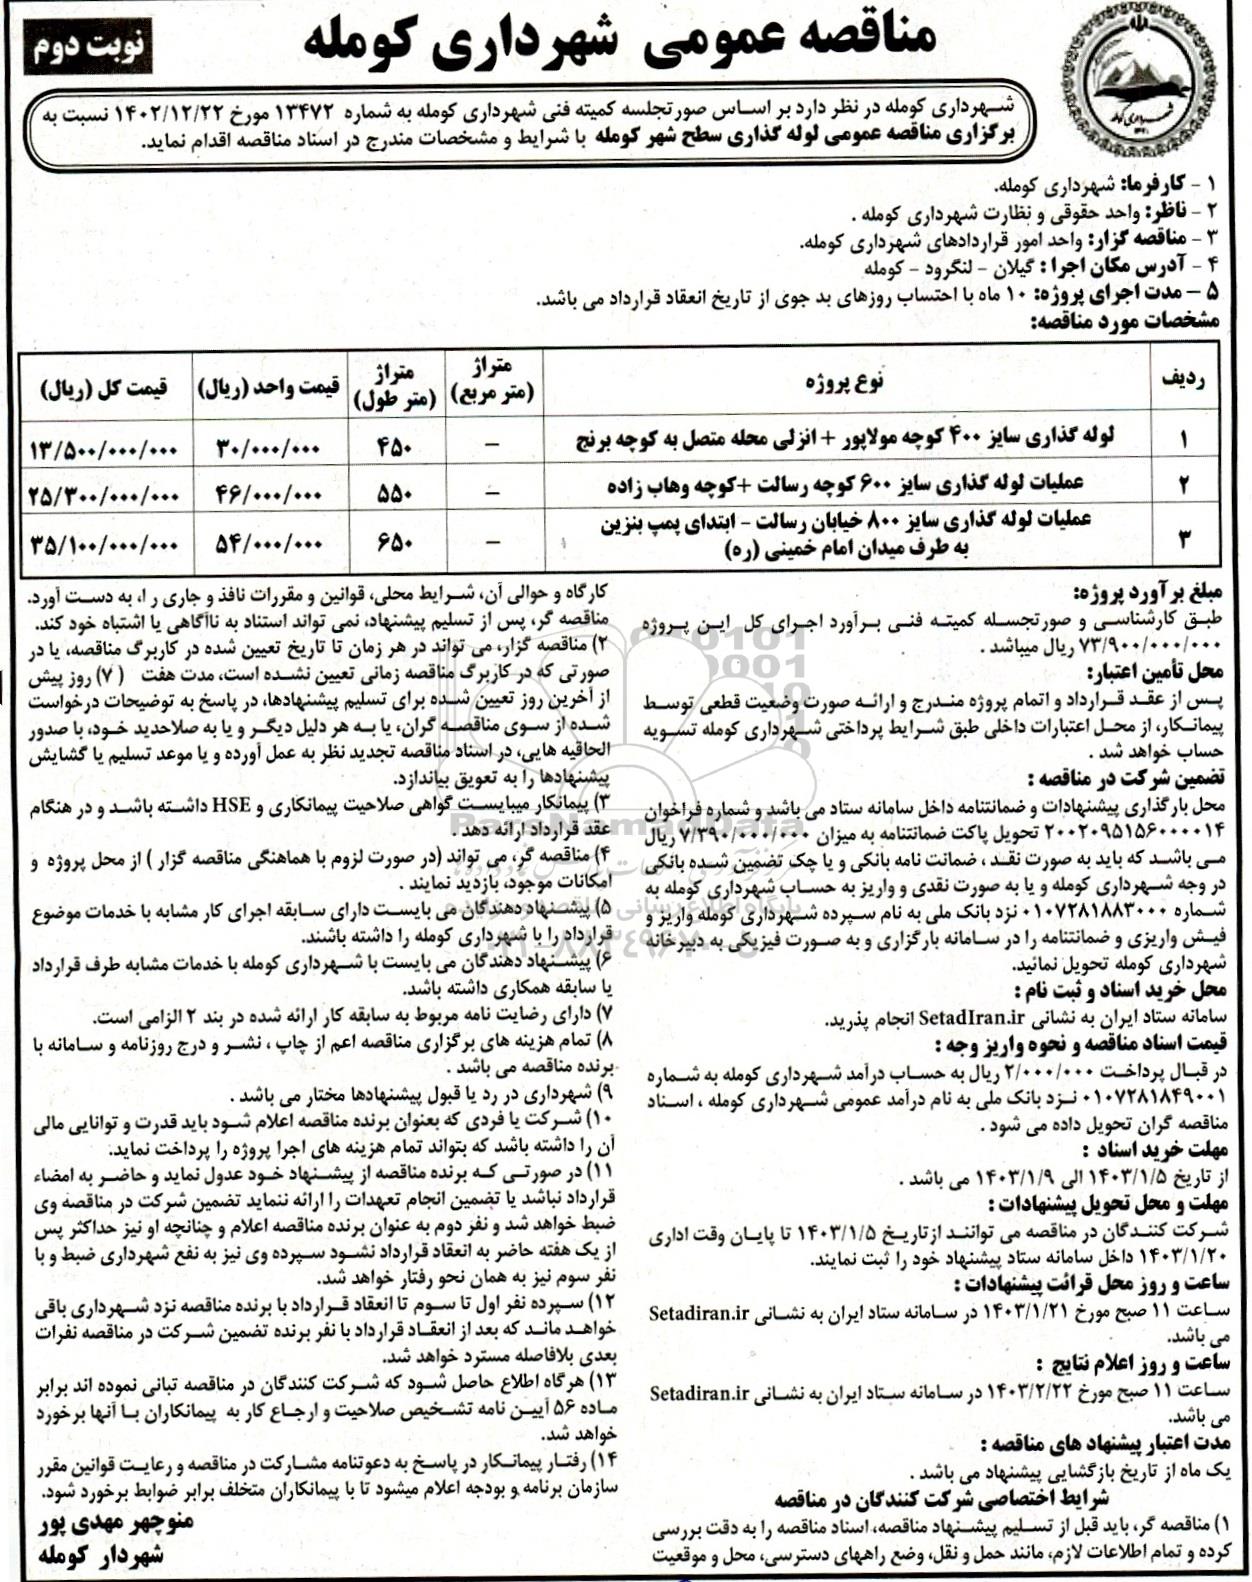 مناقصه عمومی شهرداری کومله
نوبت دوم
شهرداری کومله در نظر دارد بر اساس صورتجلسه کمیته فنی شهرداری کومله به شماره ۱۳۴۷۲ مورخ ۱۴۰۲/۱۲/۲۲ نسبت به
برگزاری مناقصه عمومی لوله گذاری سطح شهر کومله با شرایط و مشخصات مندرج در اسناد مناقصه اقدام نماید.
۱ - کارفرما: شهرداری کومله.
۲ - ناظر: واحد حقوقی و نظارت شهرداری کومله .
۳ - مناقصه گزار: واحد امور قراردادهای شهرداری کومله.
۴ - آدرس مکان اجرا : گیلان - لنگرود - کومله
۵ – مدت اجرای پروژه: ۱۰ ماه با احتساب روزهای بد جوی از تاریخ انعقاد قرارداد می باشد.
مشخصات مورد مناقصه:
ردیف نوع پروژه متراژ (متر مربع) متراژ (متر طول) قیمت واحد (ریال) قیمت کل (ریال)
۱ لوله گذاری سایز ۴۰۰ کوچه مولاپور + انزلی محله متصل به کوچه برنج – ۴۵۰ ۳۰/۰۰۰/۰۰۰ ۱۳/۵۰۰/۰۰۰/۰۰۰
۲ عملیات لوله گذاری سایز ۶۰۰ کوچه رسالت +کوچه وهاب زاده – ۵۵۰ ۴۶/۰۰۰/۰۰۰ ۲۵/۳۰۰/۰۰۰/۰۰۰
۳ عملیات لوله گذاری سایز ۸۰۰ خیابان رسالت - ابتدای پمپ بنزین
به طرف میدان امام خمینی (ره) – ۶۵۰ ۵۴/۰۰۰/۰۰۰ ۳۵/۱۰۰/۰۰۰/۰۰۰
مبلغ برآورد پروژه:
طبق کارشناسی و صورتجسله کمیته فنی برآورد اجرای کل این پروژه
۷۳/۹۰۰/۰۰۰/۰۰۰ ریال میباشد .
محل تأمین اعتبار:
پس از عقد قرارداد و اتمام پروژه مندرج و ارائه صورت وضعیت قطعی توسط
پیمانکار، از محل اعتبارات داخلی طبق شرایط پرداختی شهرداری کومله تسویه
حساب خواهد شد .
تضمین شرکت در مناقصه :
محل بارگذاری پیشنهادات و ضمانتنامه داخل سامانه ستاد می باشد و شماره فراخوان
۲۰۰۲۰۹۵۱۵۶۰۰۰۰۱۴ تحویل پاکت ضمانتنامه به میزان ۷/۳۹۰/۰۰۰/۰۰۰ ریال
می باشد که باید به صورت نقد ، ضمانت نامه بانکی و یا چک تضمین شده بانکی
در وجه شهرداری کومله و یا به صورت نقدی و واریز به حساب شهرداری کومله به
شماره ۰۱۰۷۲۸۱۸۸۳۰۰۰ نزد بانک ملی به نام سپرده شهرداری کومله واریز و
فیش واریزی و ضمانتنامه را در سامانه بارگزاری و به صورت فیزیکی به دبیرخانه
شهرداری کومله تحویل نمائید.
محل خرید اسناد و ثبت نام :
سامانه ستاد ایران به نشانی SetadIran.ir انجام پذرید.
قیمت اسناد مناقصه و نحوه واریز وجه :
در قبال پرداخت ۲/۰۰۰/۰۰۰ ریال به حساب درآمد شهرداری کومله به شماره
۰۱۰۷۲۸۱۸۴۹۰۰۱ نزد بانک ملی به نام درآمد عمومی شهرداری کومله ، اسناد
مناقصه گران تحویل داده می شود .
مهلت خرید اسناد :
از تاریخ ۱۴۰۳/۱/۵ الی ۱۴۰۳/۱/۹ می باشد .
مهلت و محل تحویل پیشنهادات :
شرکت کنندگان در مناقصه می توانند ازتاریخ ۱۴۰۳/۱/۵ تا پایان وقت اداری
۱۴۰۳/۱/۲۰ داخل سامانه ستاد پیشنهاد خود را ثبت نمایند.
ساعت و روز محل قرائت پیشنهادات :
ساعت ۱۱ صبح مورخ ۱۴۰۳/۱/۲۱ در سامانه ستاد ایران به نشانی Setadiran.ir
می باشد.
ساعت و روز اعلام نتایج :
ساعت ۱۱ صبح مورخ ۱۴۰۳/۲/۲۲ در سامانه ستاد ایران به نشانی Setadiran.ir
می باشد.
مدت اعتبار پیشنهاد های مناقصه :
یک ماه از تاریخ بازگشایی پیشنهاد می باشد .
شرایط اختصاصی شرکت کنندگان در مناقصه
۱) مناقصه گر، باید قبل از تسلیم پیشنهاد مناقصه، اسناد مناقصه را به دقت بررسی
کرده و تمام اطلاعات لازم، مانند حمل و نقل، وضع راههای دسترسی، محل و موقعیت
کارگاه و حوالی آن، شرایط محلی، قوانین و مقررات نافذ و جاری را، به دست آورد.
مناقصه گر، پس از تسلیم پیشنهاد، نمی تواند استناد به ناآگاهی یا اشتباه خود کند.
۲) مناقصه گزار، می تواند در هر زمان تا تاریخ تعیین شده در کاربرگ مناقصه، یا در
صورتی که در کاربرگ مناقصه زمانی تعیین نشده است، مدت هفت (۷) روز پیش
از آخرین روز تعیین شده برای تسلیم پیشنهادها، در پاسخ به توضیحات درخواست
شده از سوی مناقصه گران، یا به هر دلیل دیگر و یا به صلاحدید خود، با صدور
الحاقیه هایی، در اسناد مناقصه تجدید نظر به عمل آورده و یا موعد تسلیم یا گشایش
پیشنهادها را به تعویق بیاندازد.
۳) پیمانکار میبایست گواهی صلاحیت پیمانکاری و HSE داشته باشد و در هنگام
عقد قرارداد ارائه دهد .
۴) مناقصه گر، می تواند (در صورت لزوم با هماهنگی مناقصه گزار ) از محل پروژه و
امکانات موجود، بازدید نمایند .
۵) پیشنهاد دهندگان می بایست دارای سابقه اجرای کار مشابه با خدمات موضوع
قرارداد را با شهرداری کومله را داشته باشند.
۶) پیشنهاد دهندگان می بایست با شهرداری کومله با خدمات مشابه طرف قرارداد
یا سابقه همکاری داشته باشد.
۷) دارای رضایت نامه مربوط به سابقه کار ارائه شده در بند ۲ الزامی است.
۸) تمام هزینه های برگزاری مناقصه اعم از چاپ ، نشر و درج روزنامه و سامانه با
برنده مناقصه می باشد .
۹) شهرداری در رد یا قبول پیشنهادها مختار می باشد .
۱۰) شرکت یا فردی که بعنوان برنده مناقصه اعلام شود باید قدرت و توانایی مالی
آن را داشته باشد که بتواند تمام هزینه های اجرا پروژه را پرداخت نماید.
۱۱) در صورتی که برنده مناقصه از پیشنهاد خود عدول نماید و حاضر به امضاء
قرارداد نباشد یا تضمین انجام تعهدات را ارائه ننماید تضمین شرکت در مناقصه وی
ضبط خواهد شد و نفر دوم به عنوان برنده مناقصه اعلام و چنانچه او نیز حداکثر پس
از یک هفته حاضر به انعقاد قرارداد نشود سپرده وی نیز به نفع شهرداری ضبط و با
نفر سوم نیز به همان نحو رفتار خواهد شد.
۱۲) سپرده نفر اول تا سوم تا انعقاد قرارداد با برنده مناقصه نزد شهرداری باقی
خواهد ماند که بعد از انعقاد قرارداد با نفر برنده تضمین شرکت در مناقصه نفرات
بعدی بلافاصله مسترد خواهد شد.
۱۳) هرگاه اطلاع حاصل شود که شرکت کنندگان در مناقصه تبانی نموده اند برابر
ماده ۵۶ آیین نامه تشخیص صلاحیت و ارجاع کار به پیمانکاران با آنها برخورد
خواهد شد.
۱۴) رفتار پیمانکار در پاسخ به دعوتنامه مشارکت در مناقصه و رعایت قوانین مقرر
سازمان برنامه و بودجه اعلام میشود تا با پیمانکاران متخلف برابر ضوابط برخورد شود.
منوچهر مهدی پور
شهردار کومله